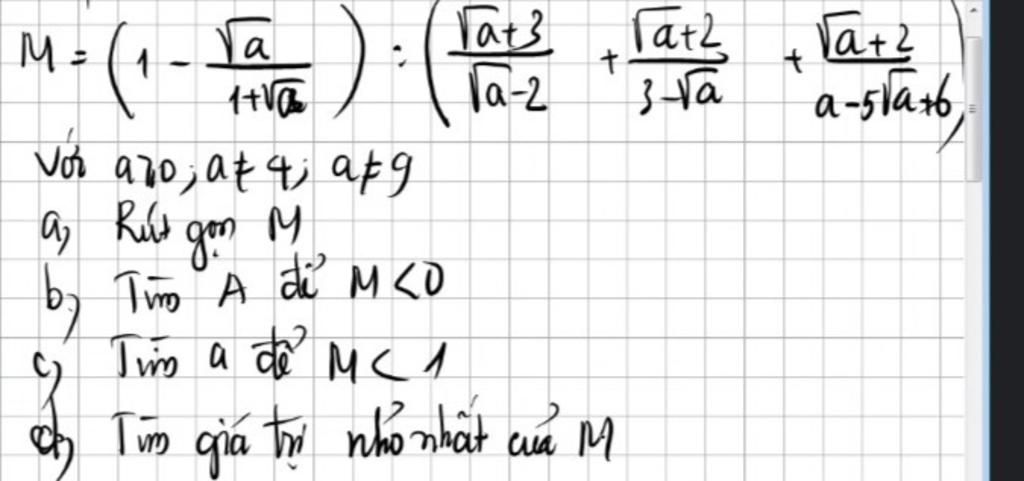 M = (1 - √a/(1+√a)) : ((√a+3)/(√a-2) + (√a+2)/(3-√a) + (√a+2)/(a-5√a+6))
Với a≥0; a≠4; a≠9
a, Rút gọn M
b, Tìm A để M<0
c, Tìm a để M < 1
d, Tìm giá trị nhỏ nhất của M